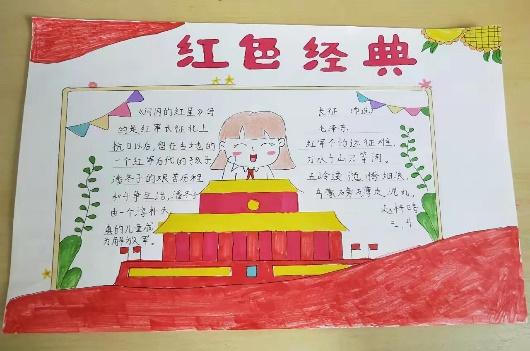 红色经典
《闪闪的红星》写
的是红军长征北上
抗日以后,留在当地的
一个红军后代的孩子
潘冬子的艰苦历程
和斗争生活,潘冬子
由一个淳朴天
真的儿童成
为解放军。
长征
毛泽东
红军不怕远征难,
万水千山只等闲。
五岭逶迤腾细浪,
乌蒙磅礴走泥丸。